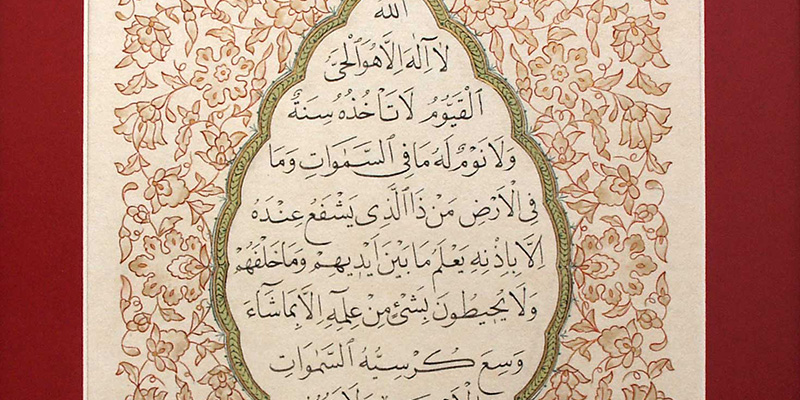 الله
لَا إِلَٰهَ إِلَّا هُوَ الْحَيُّ
الْقَيُّومُ لَا تَأْخُذُهُ سِنَةٌ
وَلَا نَوْمٌ لَهُ مَا فِي السَّمَوَاتِ وَمَا
فِي الْأَرْضِ مَنْ ذَا الَّذِي يَشْفَعُ عِنْدَهُ
إِلَّا بِإِذْنِهِ يَعْلَمُ مَا بَيْنَ أَيْدِيهِمْ وَمَا خَلْفَهُمْ
وَلَا يُحِيطُونَ بِشَيْءٍ مِنْ عِلْمِهِ إِلَّا بِمَا شَاءَ
وَسِعَ كُرْسِيُّهُ السَّمَوَاتِ